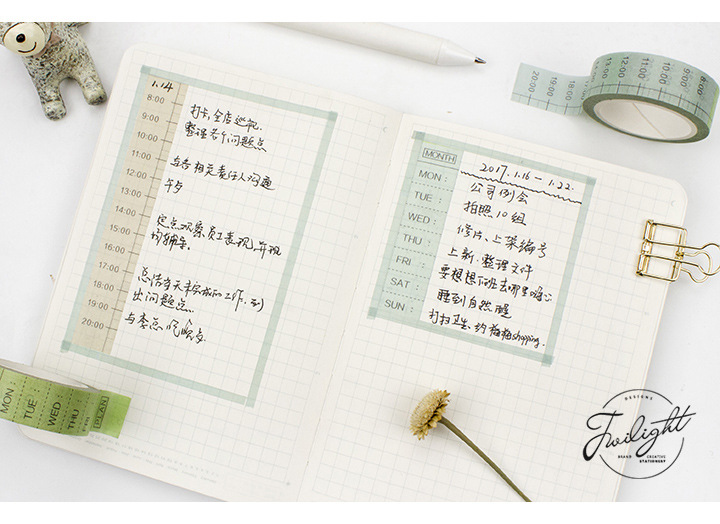 1.14
8:00
9:00
10:00
11:00
12:00
13:00
14:00
15:00
16:00
17:00
18:00
19:00
20:00
打卡,全店巡视.
整理各个问题点
与各相关责任人沟通
午歺
定点观察员工表现,并现
场辅导.
总结当天未完成的工作.列
出问题点.
与李总
MONTH
2017.1.16—1.22.
MON: 公司例会
TUE: 拍照10组
WED: 修片、上架编号
THU: 上新.整理文件
FRI: 要想想下班去哪里嗨
SAT: 睡到自然醒
SUN: 打扫卫生、约梅梅shopping.
20:00
19:00
18:00
13:00
12:00
11:00
10:00
9:00
8:00
MON:
TUE:
WED:
THU:
PLAN
DESIGNS
Twilight
BRAND CREATIVE
STATIONERY